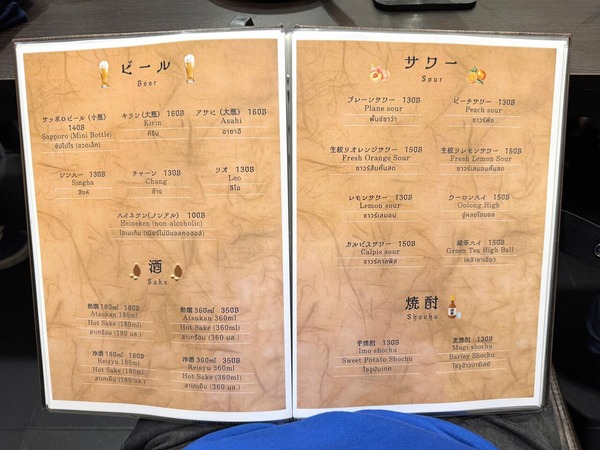 ビール
Beer
サッポロビール (小瓶)
140B
Sapporo (Mini Bottle)
ซัปโปโร (ขวดเล็ก)
キリン (大瓶) 160B
Kirin
คิริน
アサヒ (大瓶) 160B
Asahi
อาซาฮี
シンハー 130B
Singha
สิงห์
チャーン 130B
Chang
ช้าง
リオ 130B
Leo
ลีโอ
ハイネケン (ノンアル) 100B
Heineken (non-alcoholic)
ไฮเนเก้น (เบียร์ไม่มีแอลกอฮอล์)
酒
Sake
熱燗 180ml 180B
Atsukan 180ml
Hot Sake (180ml)
สาเกร้อน (180 มล.)
熱燗 360ml 350B
Atsukan 360ml
Hot Sake (360ml)
สาเกร้อน (360 มล.)
冷酒 180ml 180B
Reisyu 180ml
Hot Sake (180ml)
สาเกเย็น (180 มล.)
冷酒 360ml 350B
Reisyu 360ml
Hot Sake (360ml)
สาเกเย็น (360 มล.)
サワー
Sour
プレーンサワー 130B
Plane sour
พั้นช์ซาว่า
ピーチサワー 130B
Peach sour
ซาวร์พีช
生絞りオレンジサワー 150B
Fresh Orange Sour
ซาวร์ส้มคั้นสด
生絞りレモンサワー 150B
Fresh Lemon Sour
ซาวร์เลมอนคั้นสด
レモンサワー 130B
Lemon sour
ซาวร์เลมอน
ウーロンハイ 150B
Oolong High
อู่หลงไฮบอล
カルピスサワー 150B
Calpis sour
ซาวร์คาลพิส
緑茶ハイ 150B
Green Tea High Ball
เหล้าชาเขียว
焼酎
Shochu
芋焼酎 130B
Imo shochu
Sweet Potato Shochu
โชจูมันเทศ
麦焼酎 130B
Mugi shochu
Barley Shochu
โชจูข้าวบาร์เลย์